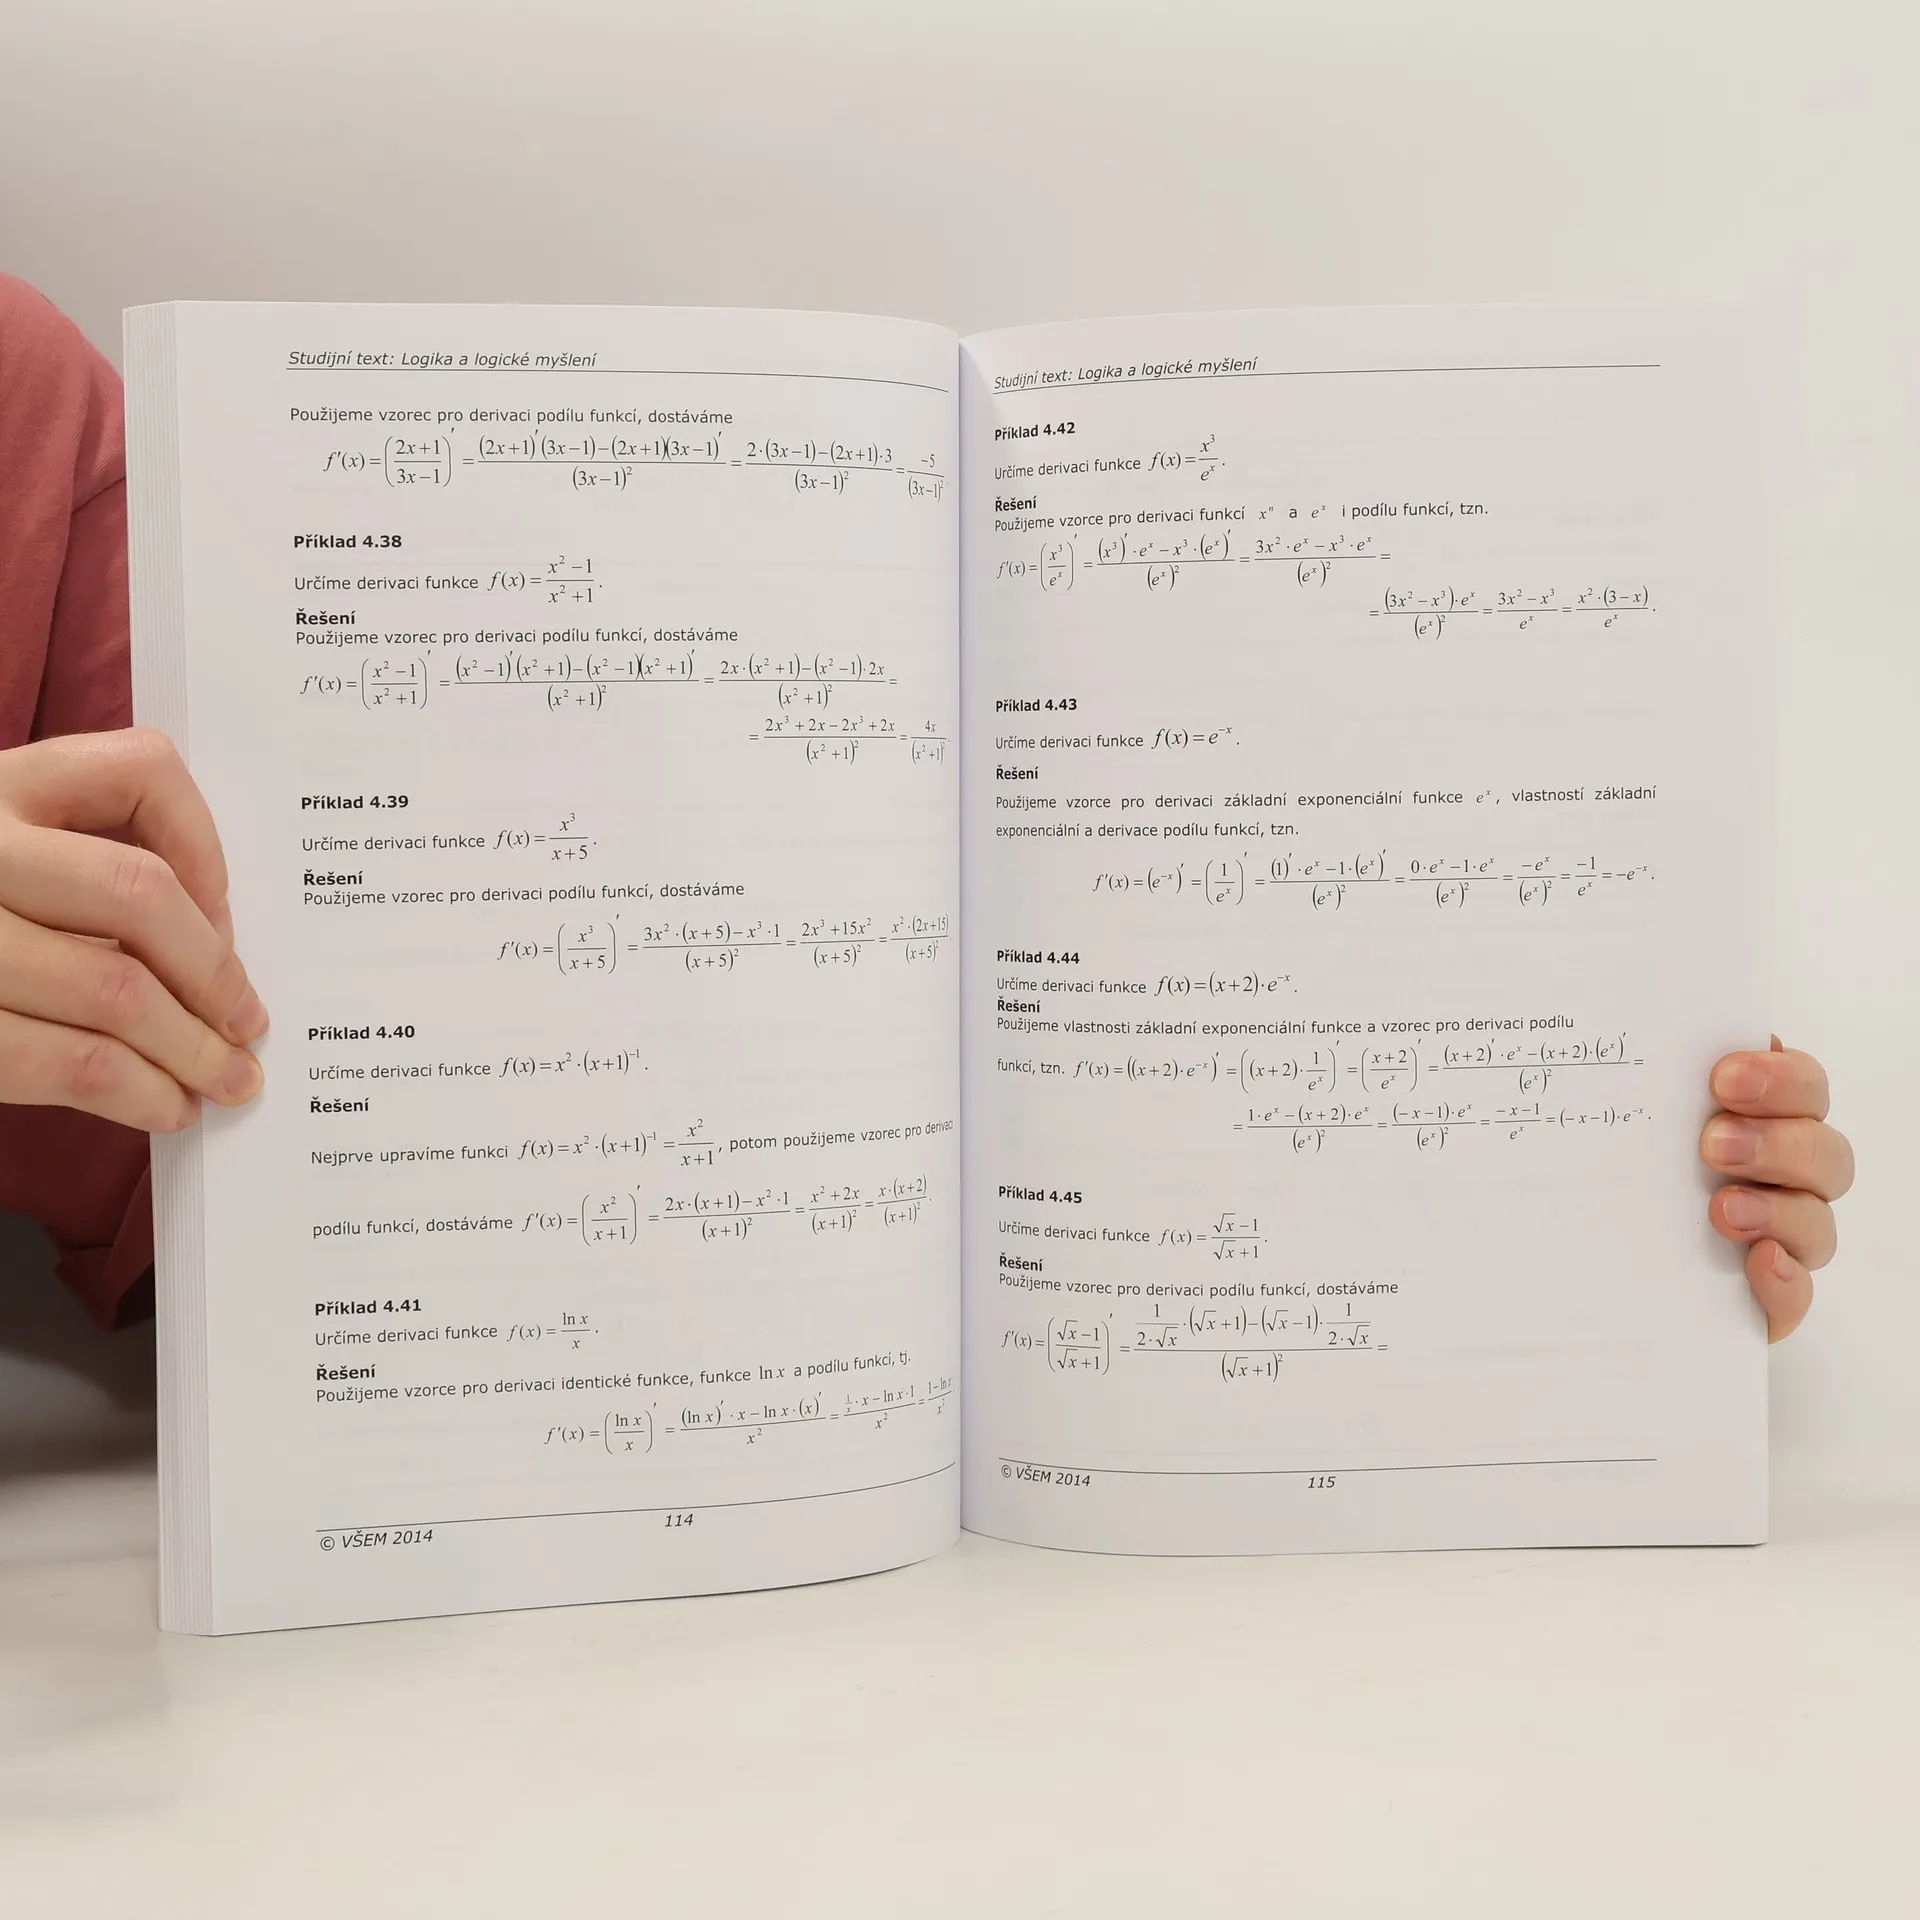 Studijní text: Logika a logické myšlení
Použijeme vzorec pro derivaci podílu funkcí, dostáváme
f'(x) = ((2x+1)/(3x−1))' = ((2x+1)'(3x−1)−(2x+1)(3x−1)')/(3x−1)² = (2·(3x−1)−(2x+1)·3)/(3x−1)² = −5/(3x−1)²
Příklad 4.38
Určíme derivaci funkce f(x) = (x²−1)/(x²+1).
Řešení
Použijeme vzorec pro derivaci podílu funkcí, dostáváme
f'(x) = ((x²−1)/(x²+1))' = ((x²−1)'(x²+1)−(x²−1)(x²+1)')/(x²+1)² = (2x·(x²+1)−(x²−1)·2x)/(x²+1)² =
= (2x³+2x−2x³+2x)/(x²+1)² = 4x/(x²+1)².
Příklad 4.39
Určíme derivaci funkce f(x) = x³/(x+5).
Řešení
Použijeme vzorec pro derivaci podílu funkcí, dostáváme
f'(x) = (x³/(x+5))' = (3x²·(x+5)−x³·1)/(x+5)² = (2x³+15x²)/(x+5)² = (x²·(2x+15))/(x+5)²
Příklad 4.40
Určíme derivaci funkce f(x) = x²·(x+1)⁻¹.
Řešení
Nejprve upravíme funkci f(x) = x²·(x+1)⁻¹ = x²/(x+1), potom použijeme vzorec pro derivaci
podílu funkcí, dostáváme f'(x) = (x²/(x+1))' = (2x·(x+1)−x²·1)/(x+1)² = (x²+2x)/(x+1)² = (x·(x+2))/(x+1)².
Příklad 4.41
Určíme derivaci funkce f(x) = (ln x)/x.
Řešení
Použijeme vzorce pro derivaci identické funkce, funkce ln x a podílu funkcí, tj.
f'(x) = ((ln x)/x)' = ((ln x)'·x−ln x·(x)')/x² = (1/x·x−ln x·1)/x² = (1−ln x)/x²
© VŠEM 2014
114
Studijní text: Logika a logické myšlení
Příklad 4.42
Určíme derivaci funkce f(x) = x³/eˣ.
Řešení
Použijeme vzorce pro derivaci funkcí xⁿ a eˣ i podílu funkcí, tzn.
f'(x) = (x³/eˣ)' = ((x³)'·eˣ−x³·(eˣ)')/(eˣ)² = (3x²·eˣ−x³·eˣ)/(eˣ)² =
= ((3x²−x³)·eˣ)/(eˣ)² = (3x²−x³)/eˣ = (x²·(3−x))/eˣ.
Příklad 4.43
Určíme derivaci funkce f(x) = e⁻ˣ.
Řešení
Použijeme vzorce pro derivaci základní exponenciální funkce eˣ, vlastností základní
exponenciální a derivace podílu funkcí, tzn.
f'(x) = (e⁻ˣ)' = (1/eˣ)' = ((1)'·eˣ−1·(eˣ)')/(eˣ)² = (0·eˣ−1·eˣ)/(eˣ)² = −eˣ/(eˣ)² = −1/eˣ = −e⁻ˣ.
Příklad 4.44
Určíme derivaci funkce f(x) = (x+2)·e⁻ˣ.
Řešení
Použijeme vlastnosti základní exponenciální funkce a vzorec pro derivaci podílu
funkcí, tzn. f'(x) = ((x+2)·e⁻ˣ)' = ((x+2)·1/eˣ)' = ((x+2)/eˣ)' = ((x+2)'·eˣ−(x+2)·(eˣ)')/(eˣ)² =
= (1·eˣ−(x+2)·eˣ)/(eˣ)² = ((−x−1)·eˣ)/(eˣ)² = (−x−1)/eˣ = (−x−1)·e⁻ˣ.
Příklad 4.45
Určíme derivaci funkce f(x) = (√x−1)/(√x+1).
Řešení
Použijeme vzorec pro derivaci podílu funkcí, dostáváme
f'(x) = ((√x−1)/(√x+1))' = (1/(2·√x)·(√x+1)−(√x−1)·1/(2·√x))/(√x+1)² =
© VŠEM 2014
115